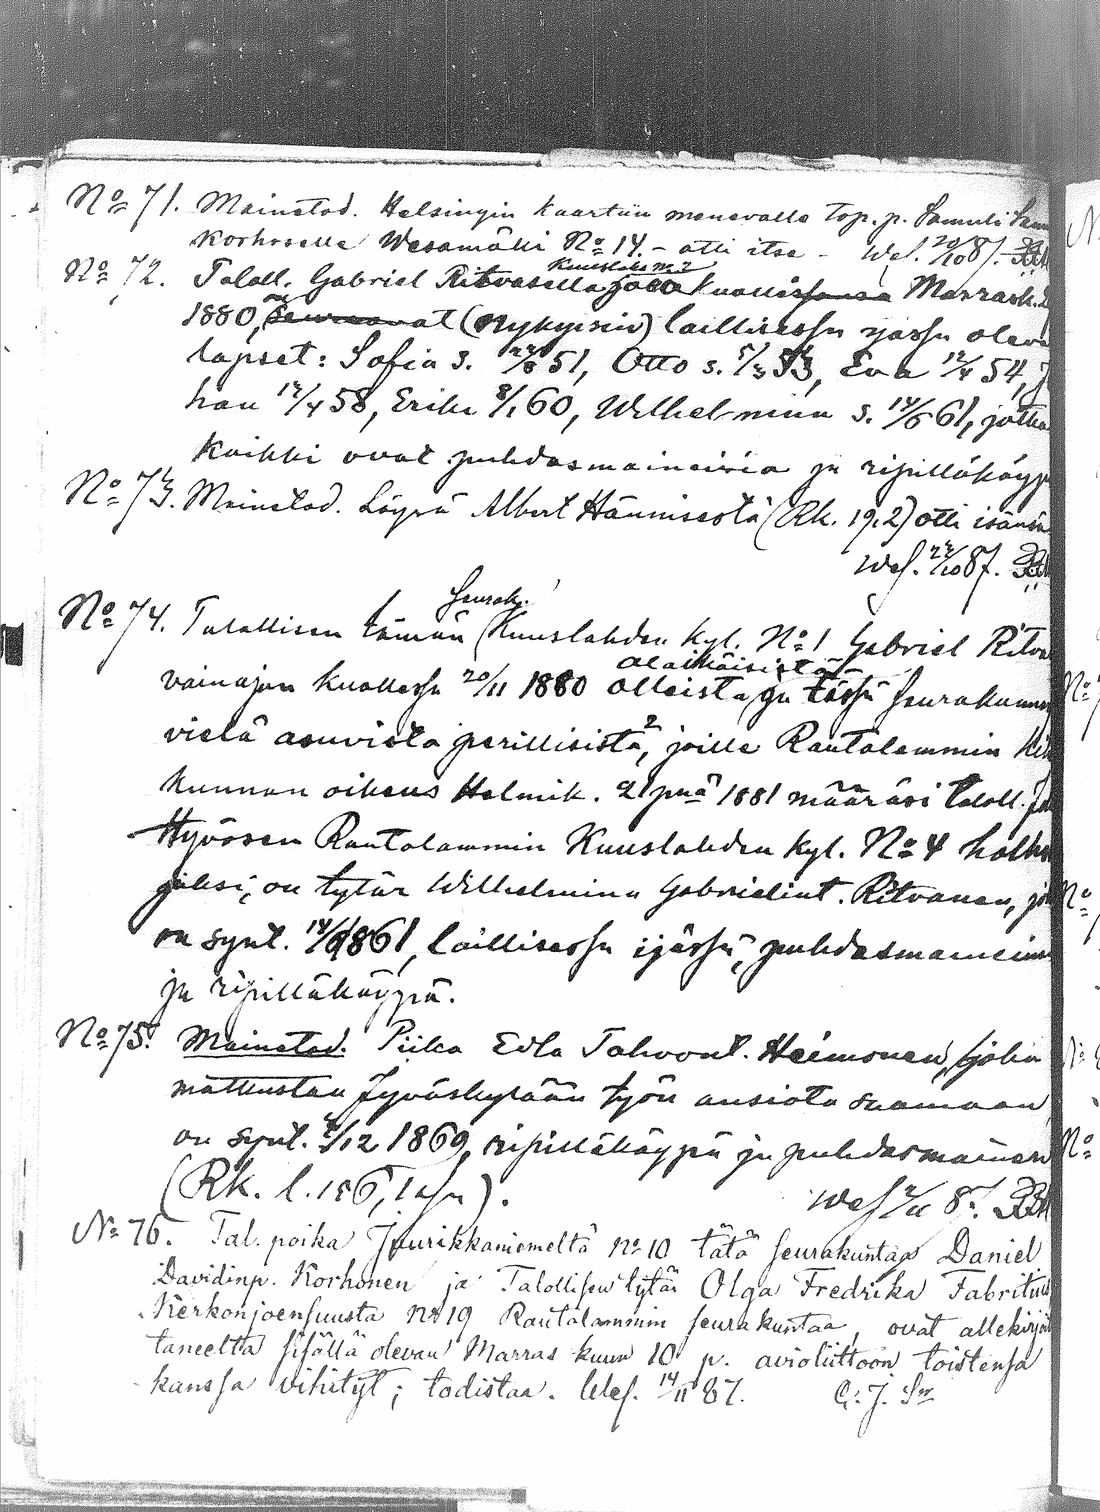 No 71. Mainetod. Helsingin Kaartiin menevälle top. p. Samuli
Korhoselle Wesamäki No 14. – otti itse – Wes. 20/10 87.
Kuuslaks No 2
No 72. Taloll. Gabriel Ritvosella kuollessansa Marrask.
1880, on seuraavat (nykyisin) laillisessa ijässä oleva
lapset: Sofia s. 51, Otto s. 53, Eva 12/4 54, J
han 12/4 58, Erika 8/1 60, Wilhelmiina s. 14/6 61, jotka
kaikki ovat puhdasmaineisia ja ripilläkäyp
No 73. Mainetod. Löysä Albert Hännisestä (Rk. 19.2) otti isänsä
Wes. 23/10 87.
seurak.
No 74. Talollisen tämän Kuuslahden kyl. No 1 Gabriel Ritva
alaikäisistä
vainajan kuollessa 20/11 1880 olleista ja tässä seurakunn
vielä asuvista perillisistä, joille Rautalammin
kunnan oikeus Helmik. 21 pnä 1881 määräsi taloll. J
Hyvösen Rautalammin Kuuslahden kyl. No 4 holho
jaksi, on tytär Wilhelmina Gabrielint. Ritvanen, jo
on synt. 14/6 1861, laillisessa ijässä, puhdasmainein
ja ripilläkäypä.
No 75. Mainetod. Piika Edla Tahvont. Heimonen, joka
matkustaa Jyväskylään työn ansiota saamaan
on synt. /12 1869, ripilläkäypä ja puhdasmainen
(Rk. l. 156, ). Wes /11 87.
No 76. Tal. poika Juurikkaniemeltä No 10 tätä seurakuntaa Daniel
Davidinp. Korhonen ja Talollisen tytär Olga Fredrika Fabritius
Kerkonjoensuusta No 19 Rautalammin seurakuntaa, ovat allekirjoi
taneelta sisällä olevan Marras kuun 10 p. avioliittoon toistensa
kanssa vihityt; todistaa. Wes. 14/11 87. G. J. Sn